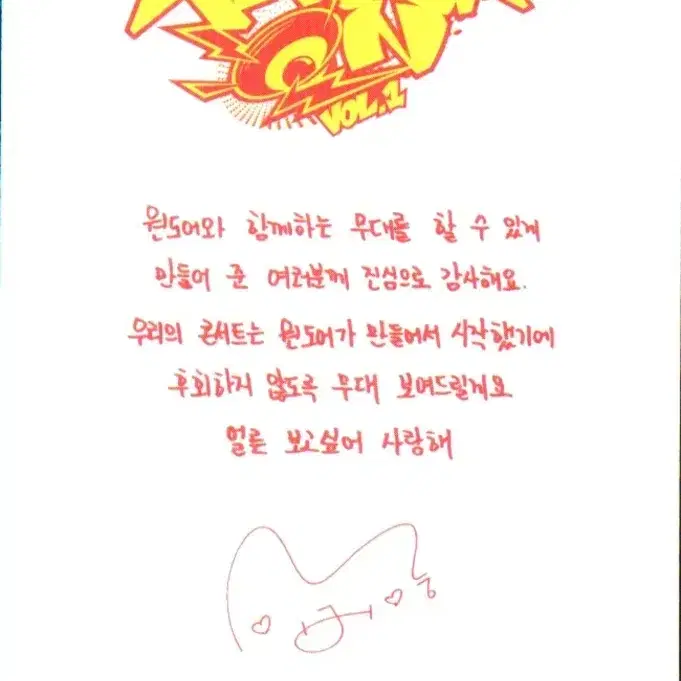 ON
VOL.1
원도어와 함께하는 무대를 할 수 있게
만들어 준 여러분께 진심으로 감사해요.
우리의 콘서트는 원도어가 만들어서 시작했기에
후회하지 않도록 무대 보여드릴게요
얼른 보고싶어 사랑해